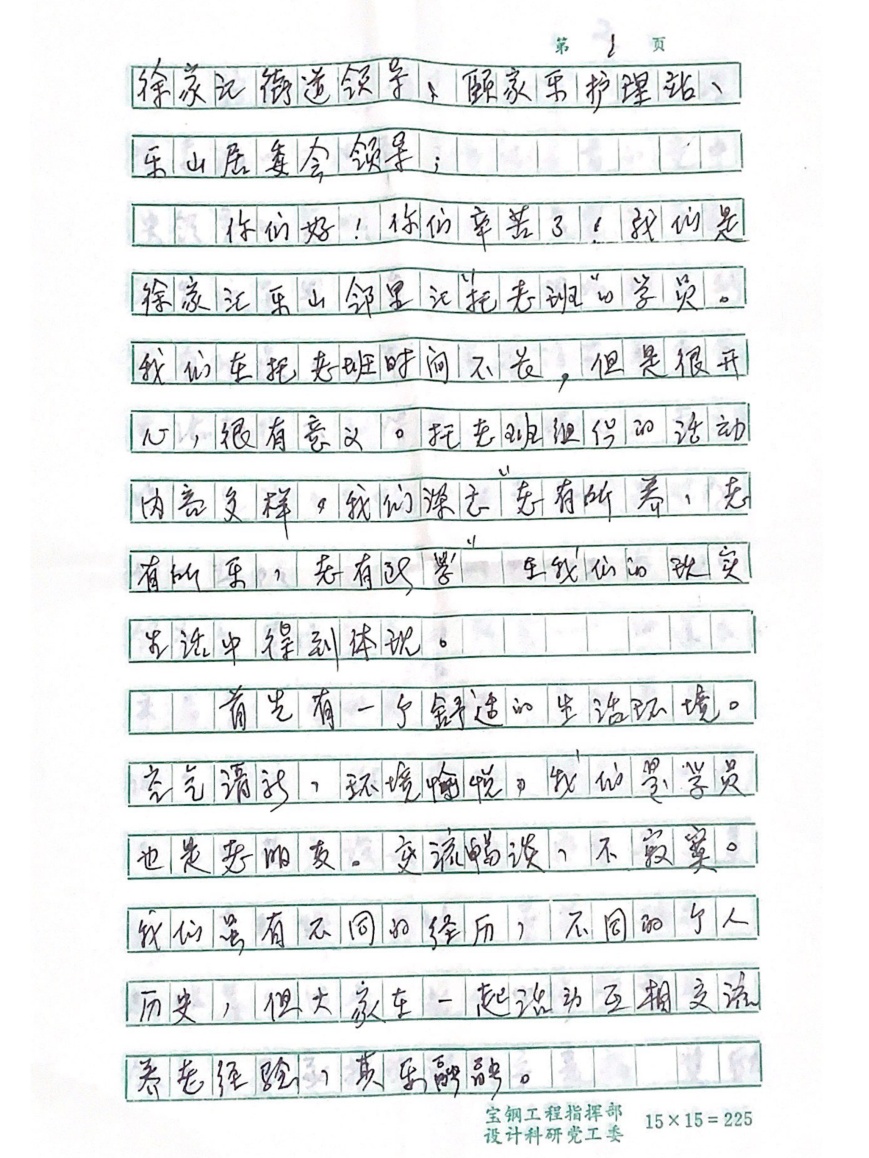 第 1 页
徐家汇街道领导、颐家乐护理站、
乐山居委会领导：
你们好！你们辛苦了！我们是
徐家汇乐山邻里汇“托老班”的学员。
我们在托老班时间不长，但是很开
心，很有意义。托老班组织的活动
内容多样，我们深感“老有所养、老
有所乐，老有所学”在我们的现实
生活中得到体现。
首先有一个舒适的生活环境。
空气清新，环境愉悦，我们是学员
也是老朋友。交流畅谈，不寂寞。
我们虽有不同的经历，不同的个人
历史，但大家在一起活动互相交流
养老经验，其乐融融。
宝钢工程指挥部
设计科研党工委
15×15=225